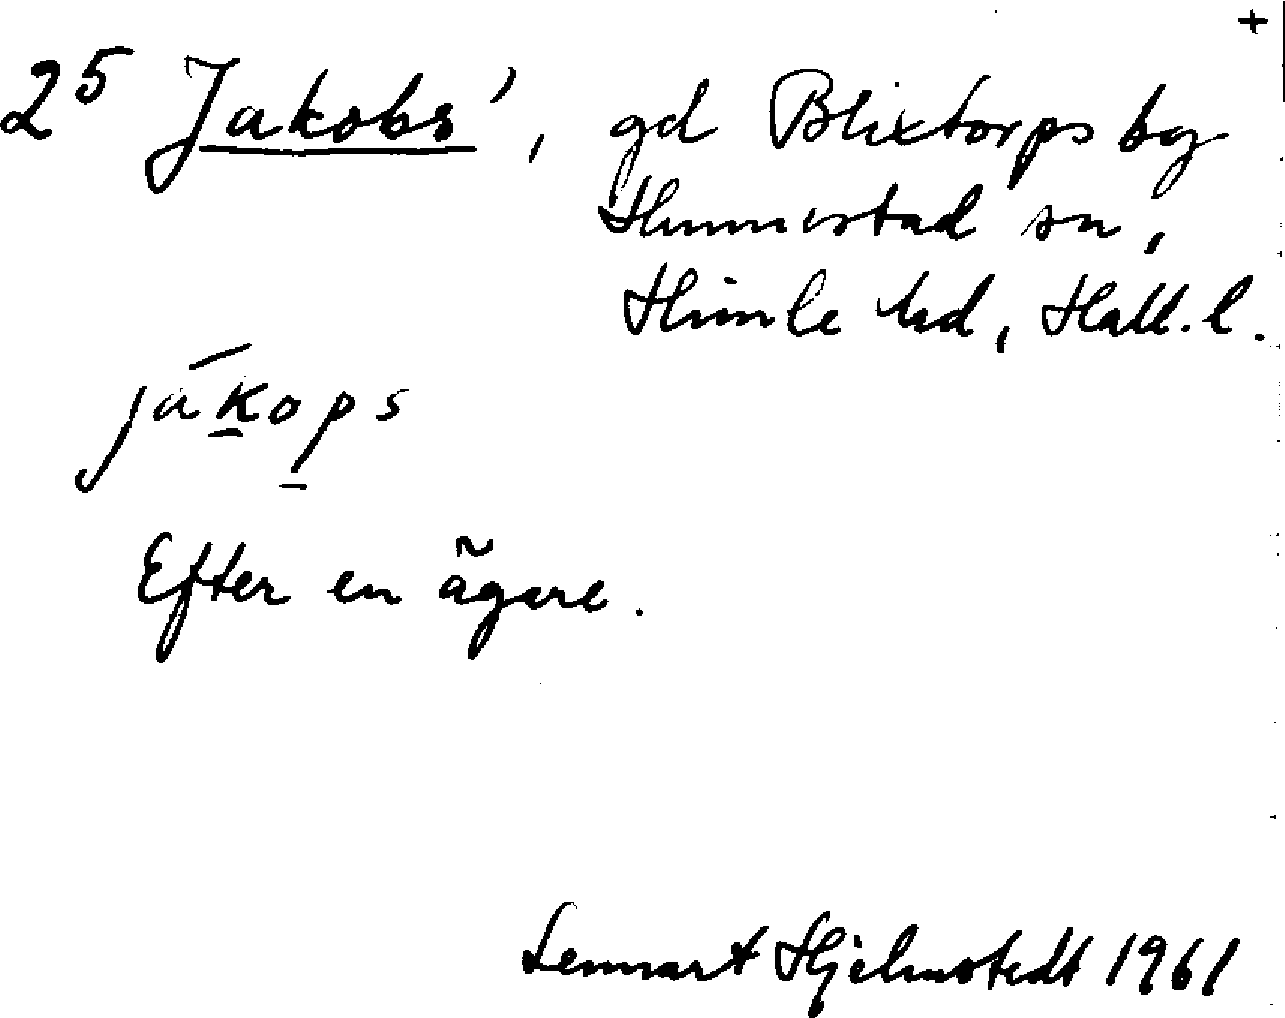 +
2⁵ Jakobs', gd Blixtorps by
Hunnestad sn,
Himle hd, Hall. l.
jákops
Efter en ägare.
Lennart Hjelmstedt 1961